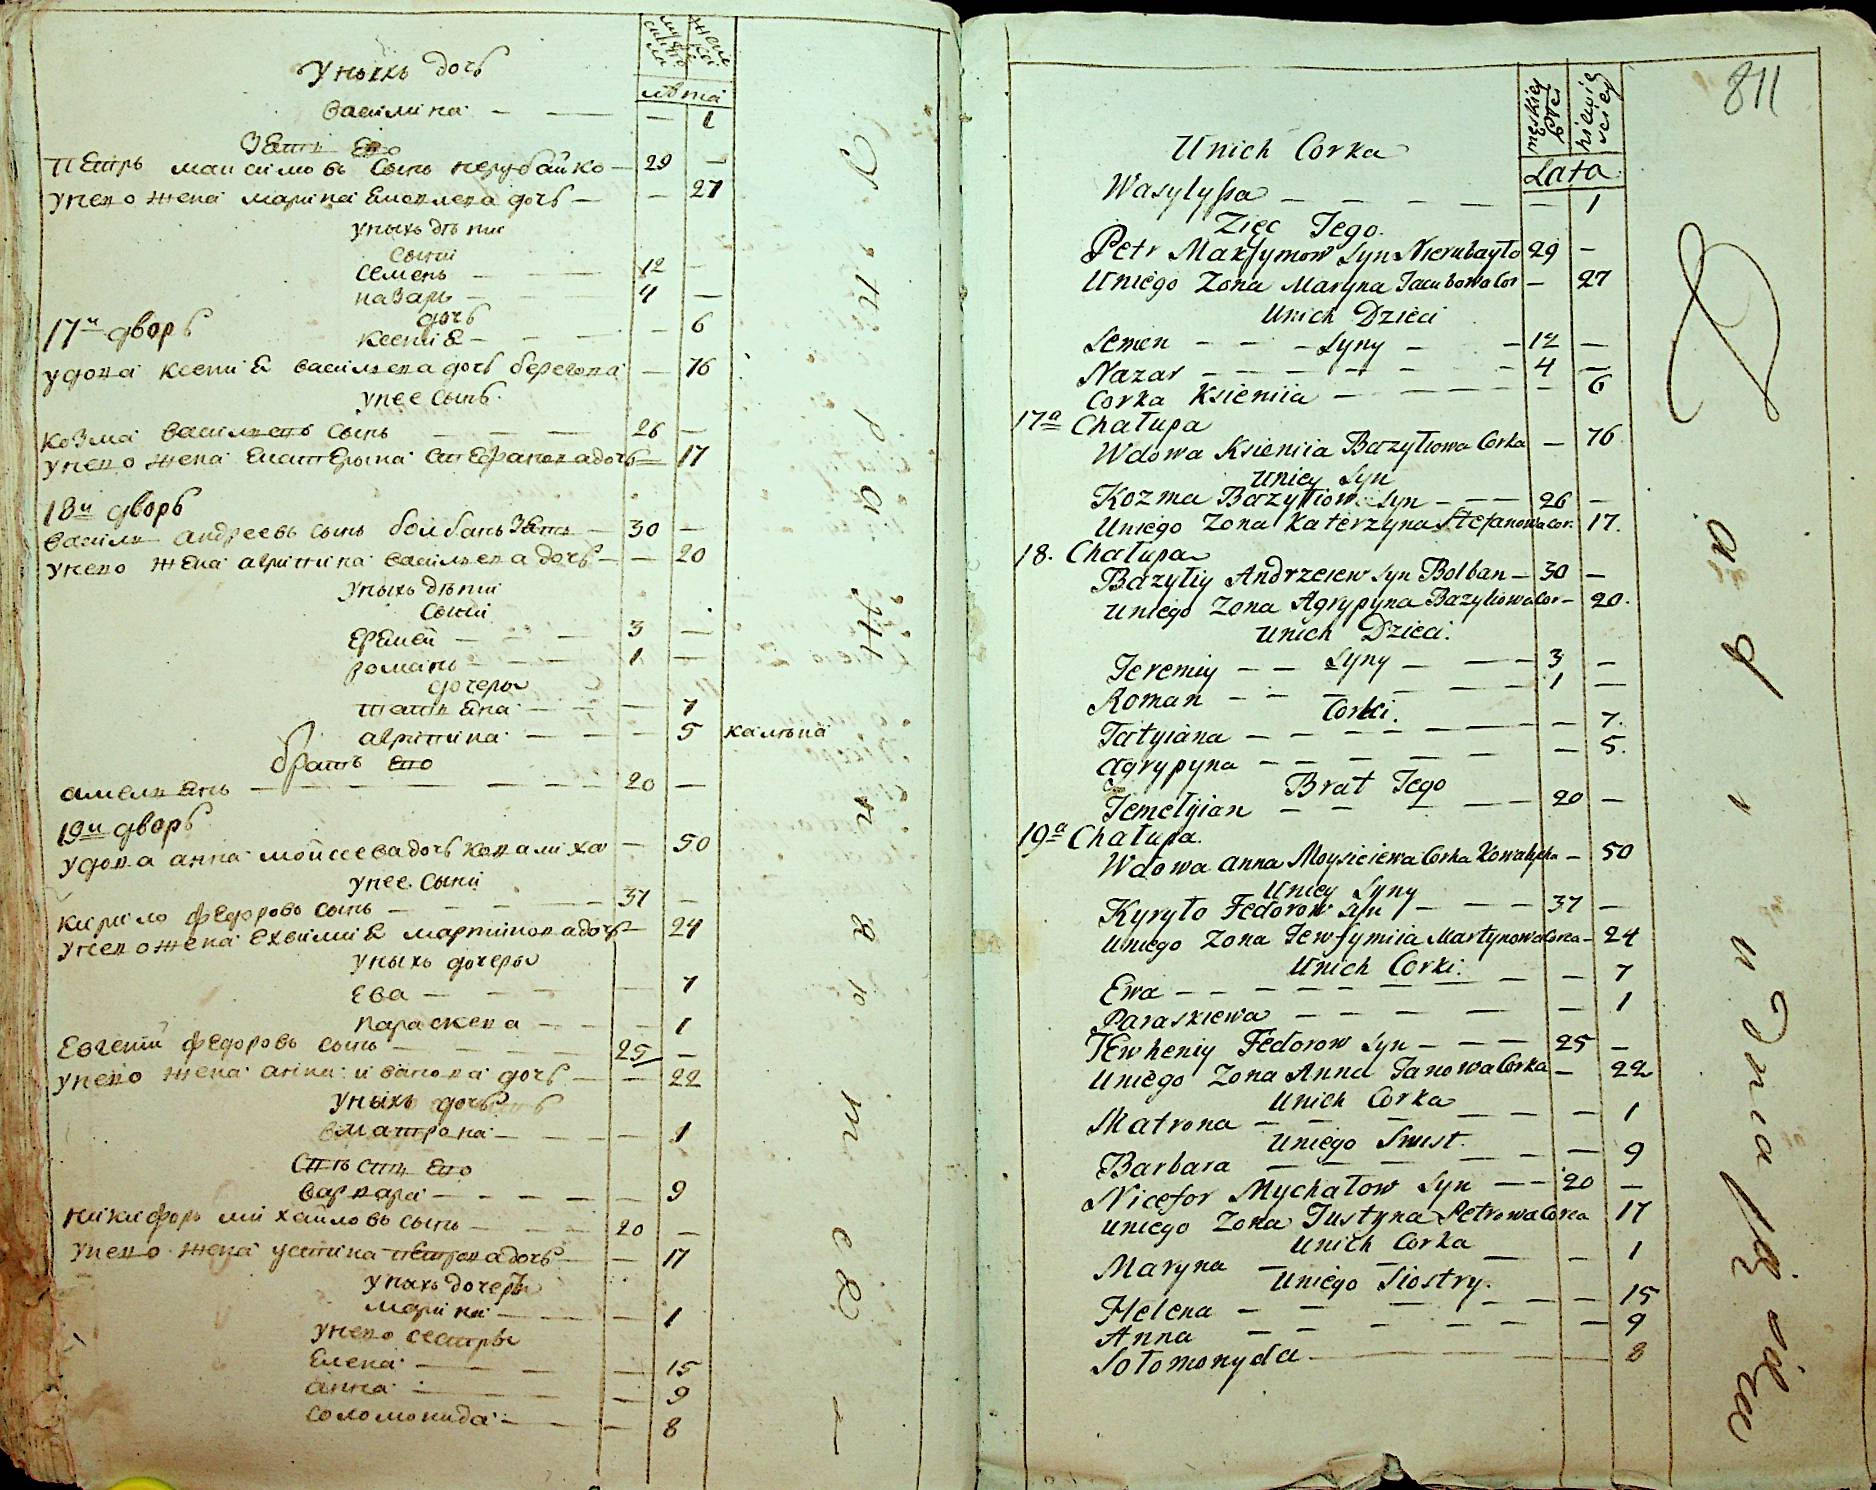 мужеска
женска
лѣта
у ныхъ дочь
василина — — — 1
зять его
петръ максимовъ сынъ нерубайко — 29 —
у него жена марина яковлева дочь — — 27
у ныхъ дѣти
сыни
семенъ — — — 12 —
назаръ — — — 4 —
дочь
ксения — — — 6
17й дворъ
удова ксения василиева дочь — 76
у нее сынъ
козма василиевъ сынъ — — — 26 —
у него жена екатерина стефанова дочь — 17
18й дворъ
василий андреевъ сынъ болбанъ зять — 30 —
у него жена агрипина василиева дочь — — 20
у ныхъ дѣти
сыни
еремей — — — 3 —
романъ — — — 1 —
дочеры
татияна — — — 7
агрипина — — — 5 калѣка
братъ его
амелиянъ — — — 20 —
19й дворъ
удова анна мойсеева дочь ковалиха — 50
у нее сыни
кирило федоровъ сынъ — — — 37 —
у него жена евфимия мартинова дочь — 24
у ныхъ дочеры
ева — — — 7
параскева — — — 1
евгений федоровъ сынъ — — — 25 —
у него жена анна иванова дочь — — 22
у ныхъ дочь
матрона — — — 1
его
варвара — — — 9
никифоръ михайловъ сынъ — — — 20 —
у него жена устина петрова дочь — — 17
у ныхъ дочеры
марина — — — 1
у него сестры
елена — — — 15
анна — — — 9
соломонида — — — 8
811
męskiey płci
niewiesciey
Lata
Unich Corka
Wasylyſsa — — — — — 1
Zięc Jego
Petr Makſymow Syn Nierubayło 29 —
Uniego Zona Maryna Jacubowa Cor — 27
Unich Dzieci
Semen — — — Syny — — 12 —
Nazar — — — — — 4 —
Corka Ksieniia — — — — 6
17a Chałupa
Wdowa Ksieniia Bazyliowa Corka — 76
Uniey Syn
Kozma Bazyliow Syn — — — 26 —
Uniego Zona Katerzyna Stefanowa Cor. 17.
18. Chałupa
Bazyliy Andrzeiew Syn Bolban — 30 —
Uniego Zona Agrypyna Bazyliowa Cor — 20.
Unich Dzieci.
Jeremiy — — Syny — — 3 —
Roman — — — — — 1 —
Corki.
Tatyiana — — — — — 7.
Agrypyna — — — — — 5.
Brat Jego
Jemelyian — — — — 20 —
19a Chałupa.
Wdowa Anna Moysieiewa Corka Kowalycha — 50
Uniey Syny
Kyryło Fedorow Syn — — — 37 —
Uniego Zona Jewfymiia Martynowa Corca — 24
Unich Corki.
Ewa — — — — — 7
Paraskiewa — — — — 1
Jewheniy Fedorow Syn — — — 25 —
Uniego Zona Anna Janowa Corka — 22
Unich Corka
Matrona — — — — — 1
Uniego
Barbara — — — — — 9
Nicefor Mychałow Syn — — 20 —
Uniego Zona Justyna Petrowa Corca 17
Unich Corka
Maryna — — — — — 1
Uniego Siostry.
Helena — — — — — 15
Anna — — — — — 9
Sołomonyda — — — 8